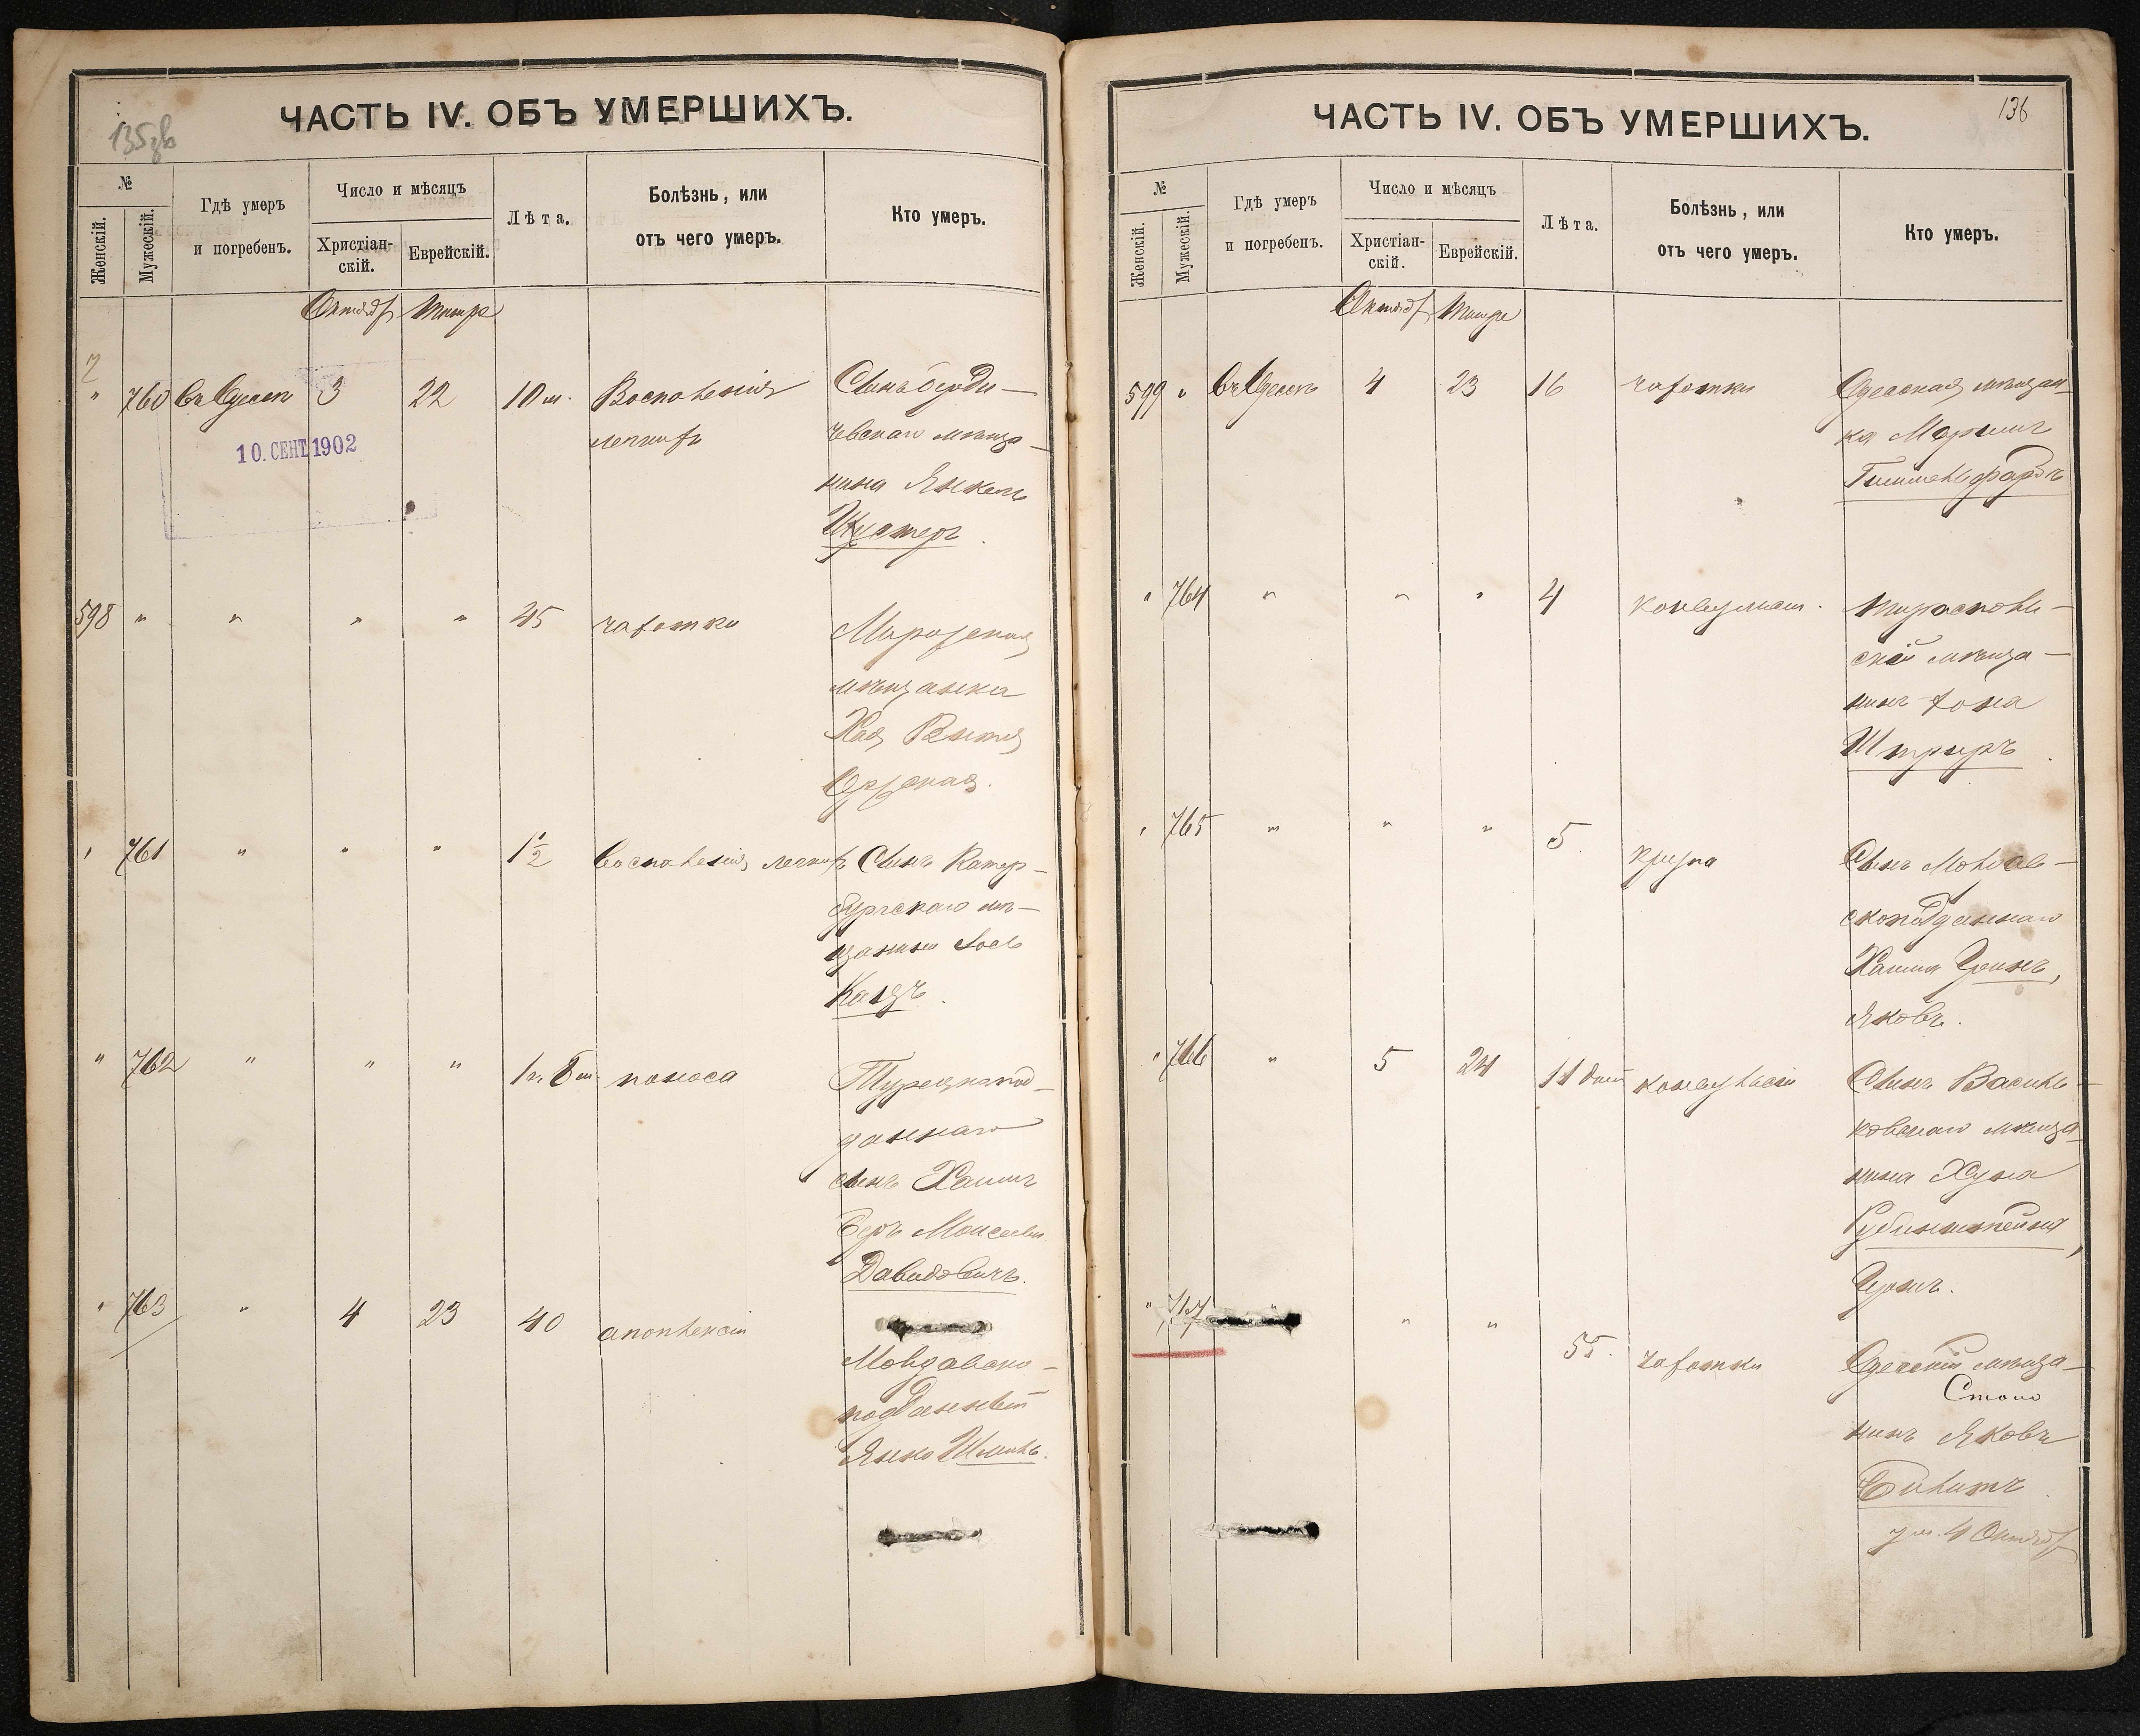 135об
ЧАСТЬ IV. ОБЪ УМЕРШИХЪ.
№
Женскій.
Мужескій.
Гдѣ умеръ
и погребенъ.
Число и мѣсяцъ
Христіан-
скій.
Еврейскій.
Лѣта.
Болѣзнь, или
отъ чего умеръ.
Кто умеръ.
Октяб Тишре
" 760 въ Одессѣ 3 22 10 м. Воспаленія Сынъ Берди-
легкихъ чевскаго мѣща-
нина Янкель
10. СЕНТ 1902
598 " " " " 45 чахотки
мѣщанка
Хая
" 761 " " " 1½ воспаленія легкихъ Сынъ Катер-
бургскаго мѣ-
щанина Іось
Кацъ.
" 762 " " " 1 г. 8 м. поноса Турецкопод-
даннаго
сынъ Хаимъ
Беръ Моисеевъ
Давидовичъ.
" 763 " 4 23 40 апоплексіи
Молдавско-
подданный
Янко Шмиль.
136
ЧАСТЬ IV. ОБЪ УМЕРШИХЪ.
№
Женскій.
Мужескій.
Гдѣ умеръ
и погребенъ.
Число и мѣсяцъ
Христіан-
скій.
Еврейскій.
Лѣта.
Болѣзнь, или
отъ чего умеръ.
Кто умеръ.
Октяб Тишре
599 " въ Одессѣ 4 23 16 чахотки Одесская мѣщан-
ка
Гиммельфарбъ
" 764 " " " 4 Тирасполь-
скій мѣща-
нинъ Іона
" 765 " " " 5 крупа Сынъ Молдав-
скоподданнаго
Хаима Гринъ,
Яковъ.
" 766 " 5 24 11 дней конвульсіи Сынъ Василь-
ковскаго мѣща-
нина Хуна
Рубинштейна,
" 767 " " " 55. чахотки Одесскій мѣща-
Столи
нинъ Яковъ
Билитъ
ум. 4 Октяб